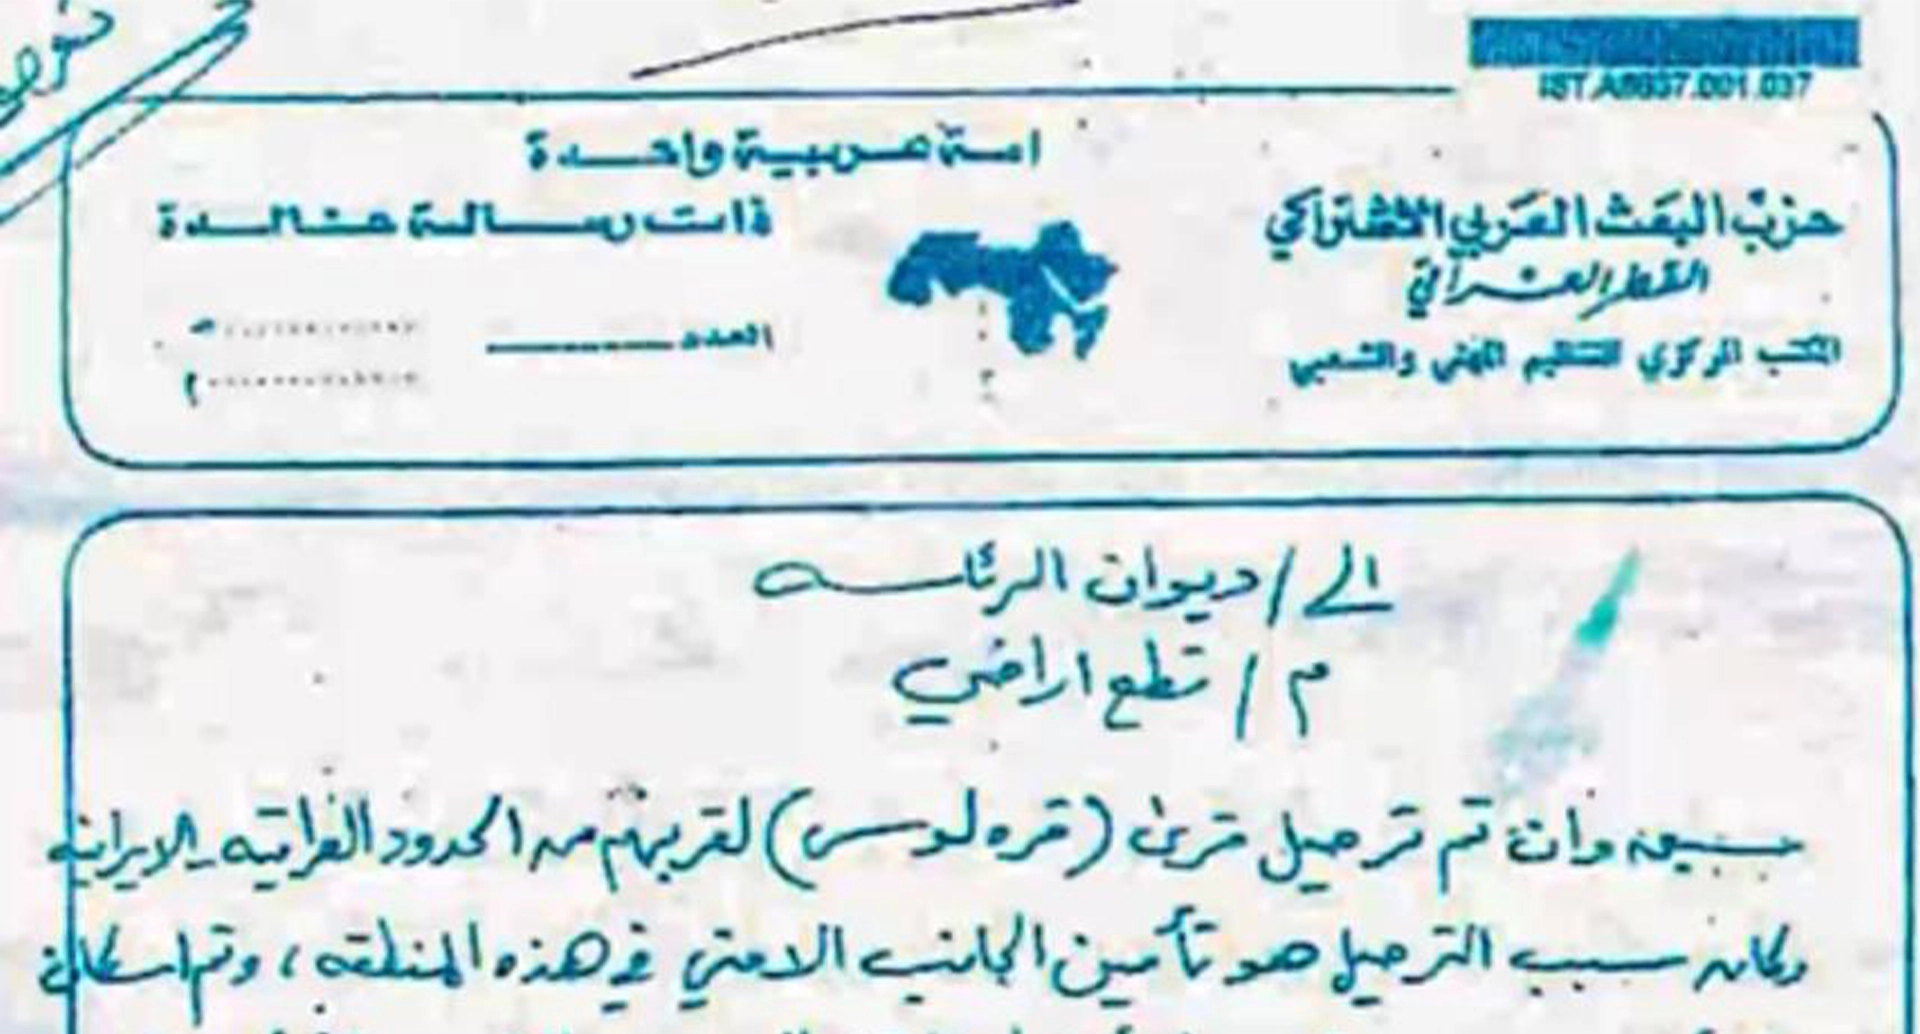 امة عربية واحدة
ذات رسالة خالدة
حزب البعث العربي الاشتراكي
القطر العراقي
المكتب المركزي للتنظيم المهني والشعبي
العدد
هـ
م
الى / ديوان الرئاسه
م / قطع اراضي
سبق وان تم ترحيل قرى (قره لوس) لقربهم من الحدود العراقيه - الايرانيه
وكان سبب الترحيل هو تأمين الجانب الامني في هذه المنطقه ، وتم اسكان